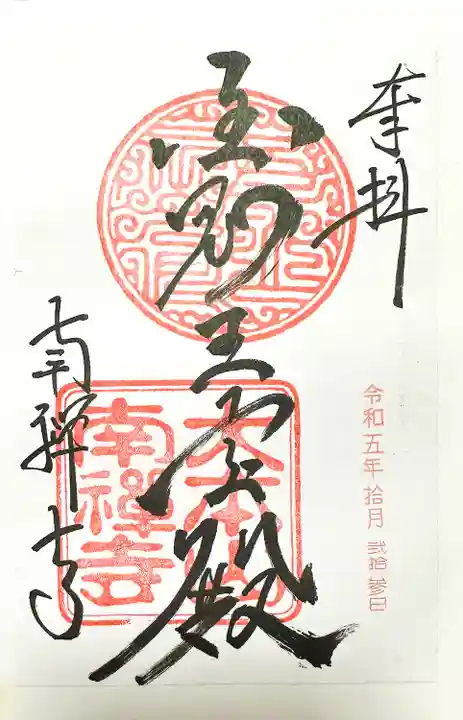 奉拝
令和五年 拾月 弐拾参日
金剛王宝殿
大本山
南禪寺
南禅寺